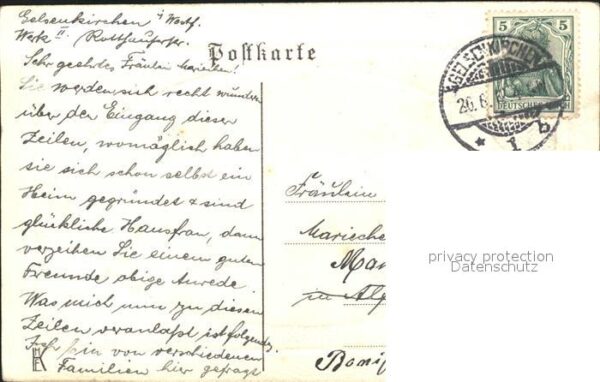 Gelsenkirchen i/Westf.
Werk II. Rotthauserstr.
Postkarte
Sehr geehrtes Fräulein Mariechen!
Sie werden sich recht wundern
über den Eingang dieser
Zeilen, womöglich haben
sie sich schon selbst ein
Heim gegründet & sind
glückliche Hausfrau, dann
verzeihen Sie einem guten
Freunde obige Anrede.
Was mich nun zu diesen
Zeilen veranlaßt ist folgendes
Ich bin von verschiedenen
Familien hier gefragt
5 5
DEUTSCHES REICH
GELSENKIRCHEN
26.6.
* 1 b
Fräulein
Marieche
Man
in Alp
Bonif
privacy protection
Datenschutz